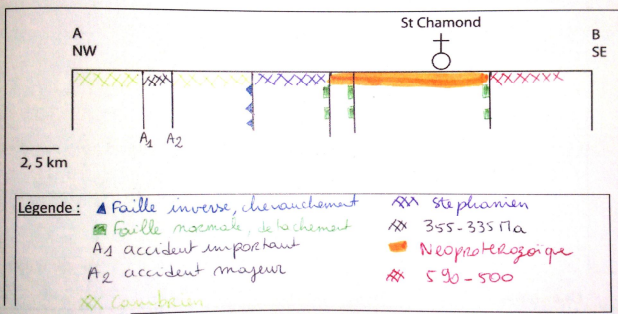 St Chamond
A
NW
B
SE
A1 A2
2, 5 km
Légende :
Faille inverse, chevauchement
Faille normale, detachement
A1 accident important
A2 accident majeur
Cambrien
Stephanien
355-335 Ma
Néoprotérozoïque
590-500